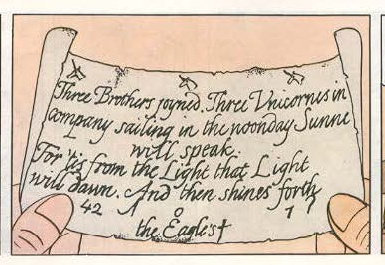 Three Brothers joyned. Three Unicornes in
company sailing in the noonday Sunne
will speak.
For 'tis from the Light that Light
will dawn. And then shines forth
42 8 1 7
the Eagle's †